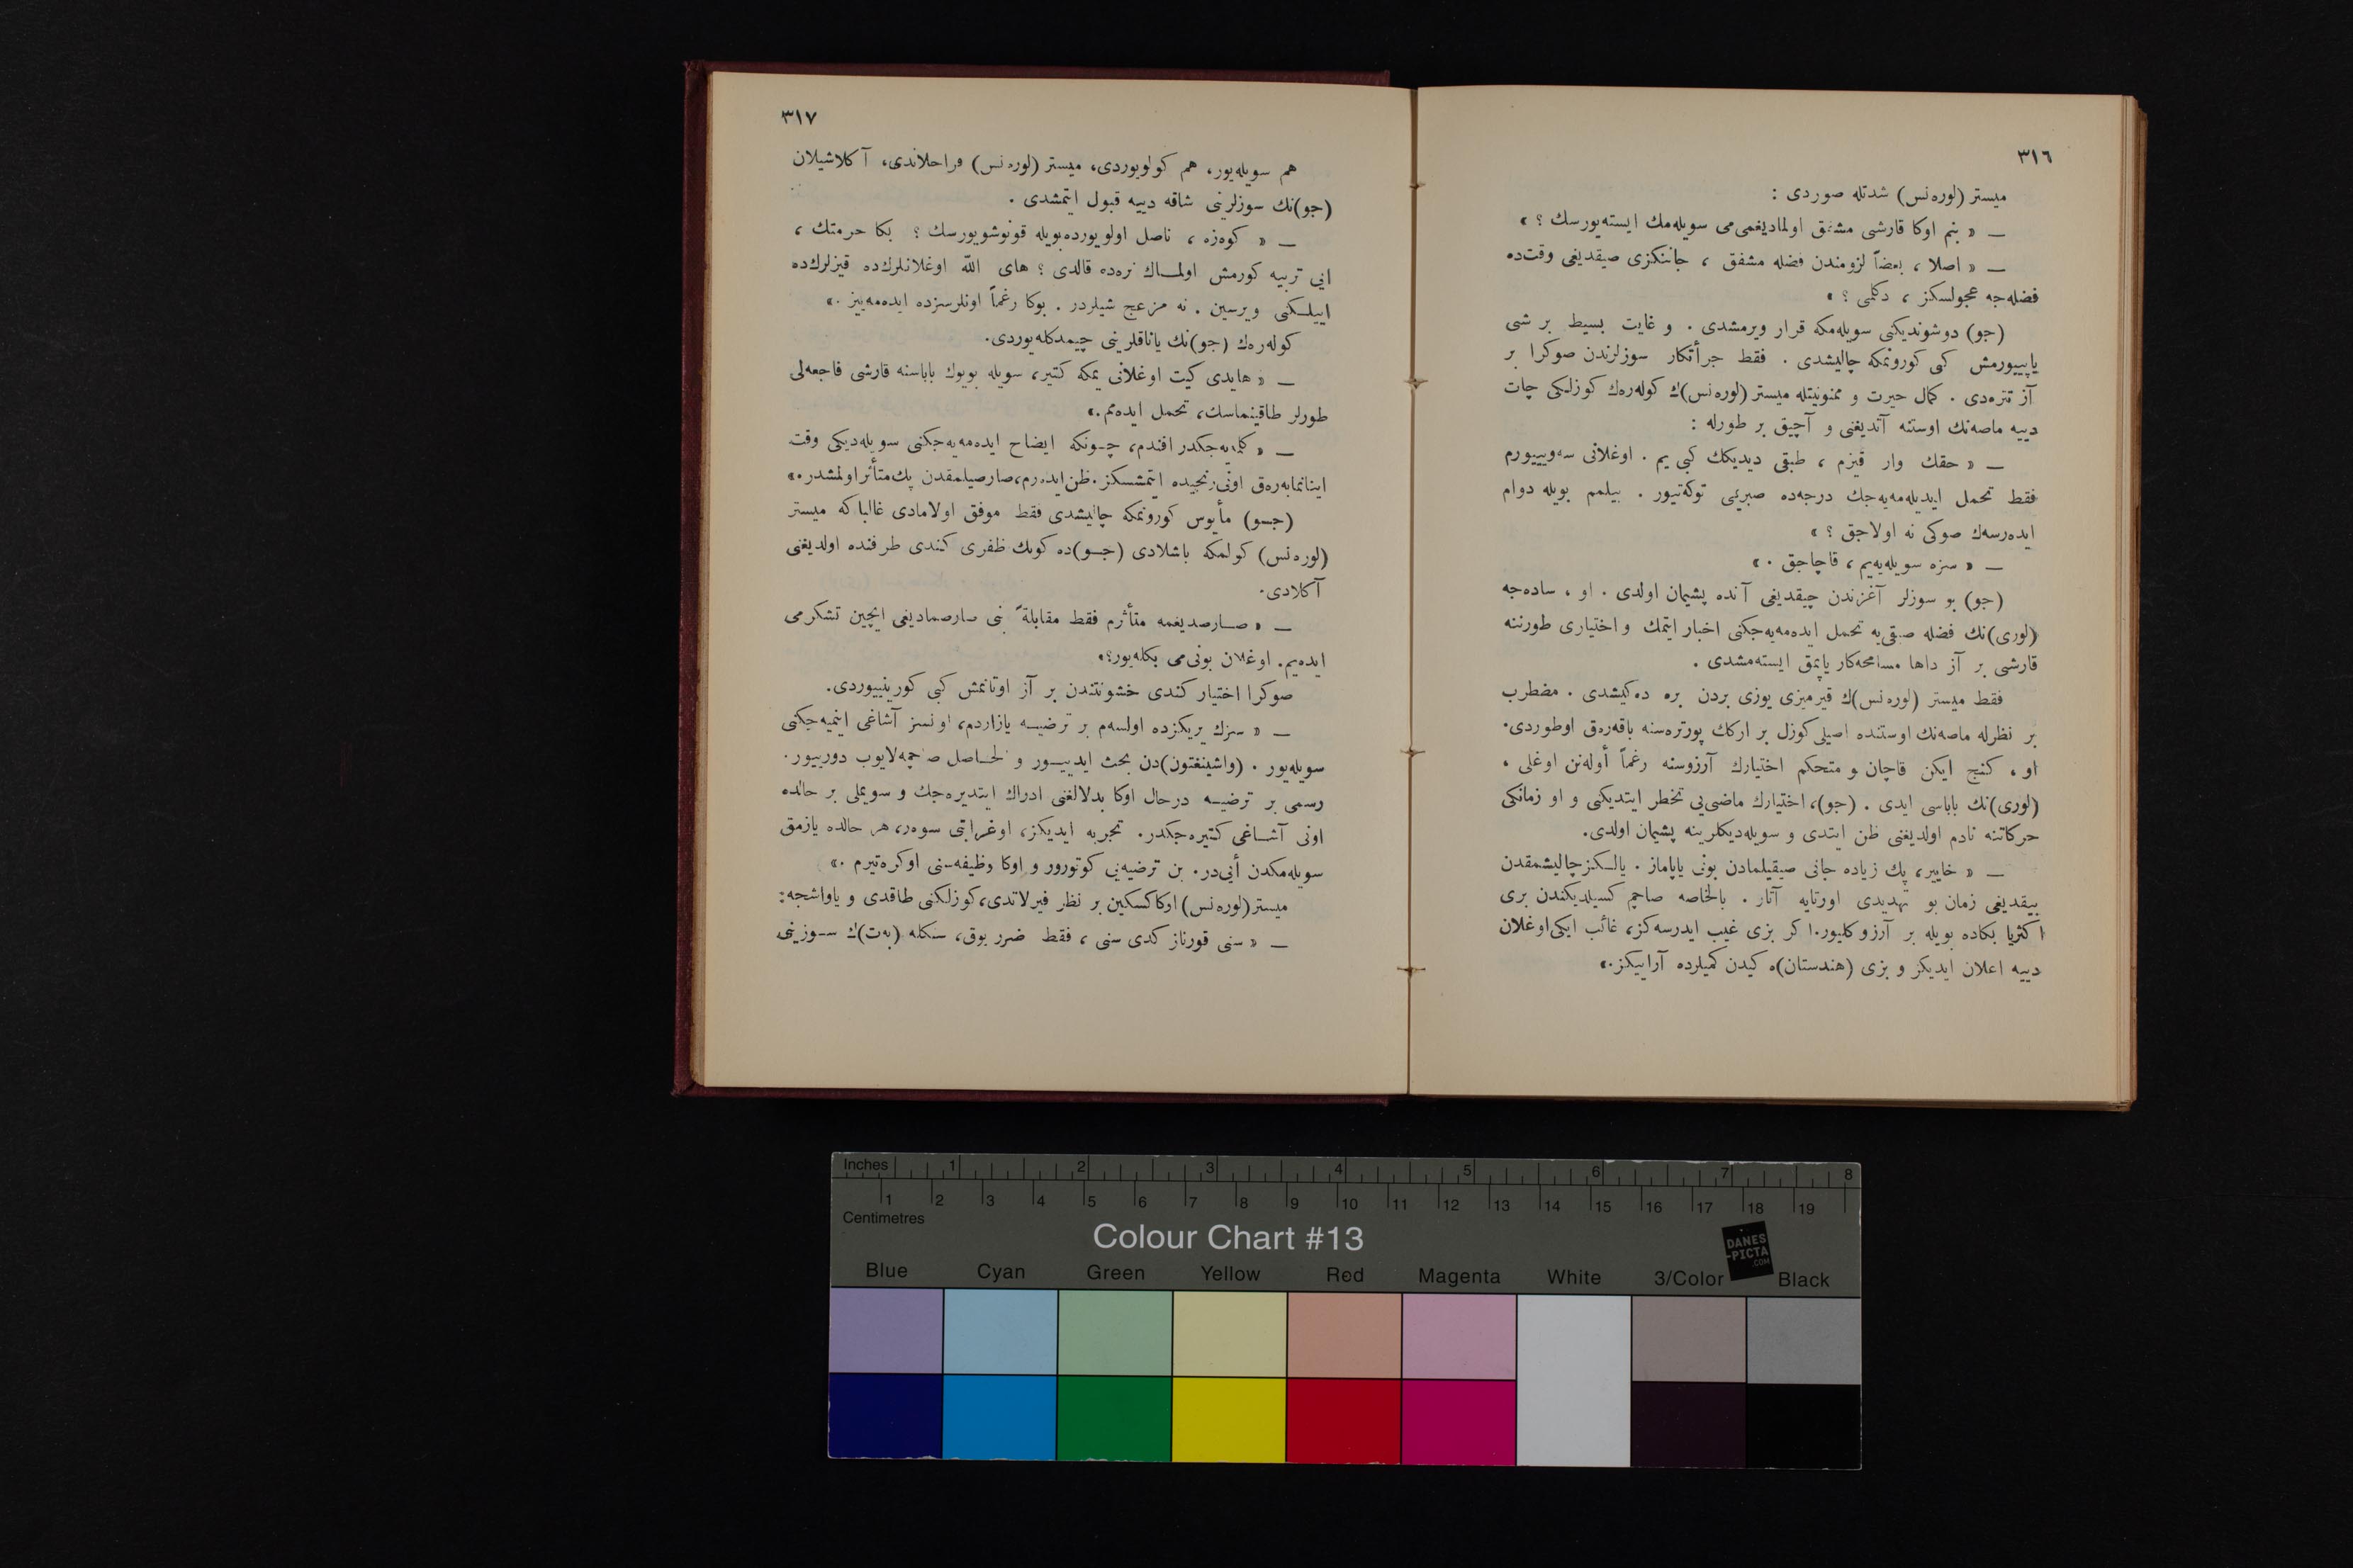 ٣١٦
میستر (لوره‌نس) شدتله صوردی :
— « بنم اوكا قارشی مشفق اولمادیغمی‌می سویله‌مك ایسته‌یورسك ؟ »
— « اصلا ، بعضاً لزومندن فضله مشفق ، جانكزی صیقدیغی وقت‌ده
فضله‌جه عجولسكز ، دكلمی ؟ »
(جو) دوشوندیكنی سویله‌مكه قرار ویرمشدی . و غایت بسیط بر شی
یاپییورمش كبی كورونمكه چالیشدی . فقط جرأتكار سوزلرندن صوكرا بر
آز تتره‌دی . كمال حیرت و ممنونیتله میستر (لوره‌نس)ك كوله‌رك كوزلیكی چات
دییه ماصه‌نك اوستنه آتدیغنی و آچیق بر طورله :
— « حقك وار قیزم ، طبقی دیدیكك كبی یم . اوغلانی سه‌وییورم
فقط تحمل ایدیله‌مه‌یه‌جك درجه‌ده صبریمی توكه‌تیور . بیلمم بویله دوام
ایده‌رسه‌ك صوكی نه اولاجق ؟ »
— « سزه سویله‌یه‌یم ، قاچاجق . »
(جو) بو سوزلر آغزندن چیقدیغی آنده پشیمان اولدی . او ، ساده‌جه
(لوری)نك فضله صیقی‌یه تحمل ایده‌مه‌یه‌جكنی اخبار ایتمك و اختیاری طورننه
قارشی بر آز داها مسامحه‌كار یاپمق ایسته‌مشدی .
فقط میستر (لوره‌نس)ك قیرمیزی یوزی بردن بره ده‌كیشدی . مضطرب
بر نظرله ماصه‌نك اوستنده اصیلی كوزل بر اركك پورتره‌سنه باقه‌رق اوطوردی.
او ، كنج ایكن قاچان و متحكم اختیارك آرزوسنه رغماً أوله‌نن اوغلی ،
(لوری)نك باباسی ایدی . (جو)، اختیارك ماضی‌یی تخطر ایتدیكنی و او زمانكی
حركاتنه نادم اولدیغنی ظن ایتدی و سویله‌دیكلرینه پشیمان اولدی.
— « خایر، پك زیاده جانی صیقیلمادن بونی یاپاماز . یالكز چالیشمقدن
بیقدیغی زمان بو تهدیدی اورتایه آتار . بالخاصه صاچم كسیلدیكندن بری
اكثریا بكاده بویله بر آرزو كلیور. اكر بزی غیب ایدرسه‌كز، غائب ایكی اوغلان
دییه اعلان ایدیكز و بزی (هندستان)ه كیدن كمیلرده آراییكز.»
٣١٧
هم سویله‌یور، هم كولویوردی، میستر (لوره‌نس) فراحلاندی، آكلاشیلان
(جو)نك سوزلرینی شاقه دییه قبول ایتمشدی .
— « كوه‌زه ، ناصل اولویورده بویله قونوشویورسك ؟ بكا حرمتك ،
ایی تربیه كورمش اولمـاك نره‌ده قالدی ؟ های الله اوغلانلرك‌ده قیزلرك‌ده
اییلـكنی ویرسین . نه مزعج شیلردر . بوكا رغماً اونلرسزده ایده‌مه‌ییز .»
كوله‌رك (جو)نك یاناقلرینی چیمدكله‌یوردی.
— « هایدی كیت اوغلانی یمكه كتیر، سویله بویوك باباسنه قارشی فاجعه‌لی
طورلر طاقینماسك، تحمل ایده‌مم.»
— « كلمیه‌جكدر افندم، چـونكه ایضاح ایده‌مه‌یه‌جكنی سویله‌دیكی وقت
اینانمایه‌رق اونی رنجیده ایتمشسكز. ظن ایده‌رم، صارصیلمقدن پك متأثر اولمشدر.»
(جـو) مأیوس كورونمكه چالیشدی فقط موفق اولامادی غالبا كه میستر
(لوره‌نس) كولمكه باشلادی (جـو)ده كونك ظفری كندی طرفنده اولدیغنی
آكلادی.
— « صـارصدیغمه متأثرم فقط مقابلةً بنی صارصمادیغی ایچین تشكرمی
ایده‌یم. اوغلان بونی‌می بكله‌یور؟»
صوكرا اختیار كندی خشونتندن بر آز اوتانمش كبی كورینییوردی.
— « سزك یریكزده اولسه‌م بر ترضیـه یازاردم، اونسز آشاغی اینمیه‌جكنی
سویله‌یور . (واشینغتون)دن بحث ایدییـور و لحـاصل صاچمه‌لایوب دورییور.
رسمی بر ترضیـه درحال اوكا بدلالغنی ادراك ایتدیره‌جك و سویملی بر حالده
اونی آشـاغی كتیره‌جكدر. تجربه ایدیكز، اوغراتبی سوه‌ر، هر حالده یازمق
سویله‌مكدن أیی‌در. بن ترضیه‌یی كوتورور و اوكا وظیفه‌سنی اوكره‌تیرم .»
میستر(لوره‌نس) اوكا كسكین بر نظر فیرلاتدی، كوزلكنی طاقدی و یاواشجه:
— « سنی قورناز كدی سنی ، فقط ضرر یوق، سنكله (به‌ت)ك سـوزینی
Inches 1 2 3 4 5 6 7 8
1 2 3 4 5 6 7 8 9 10 11 12 13 14 15 16 17 18 19
Centimetres
Colour Chart #13
DANES
-PICTA
.COM
Blue Cyan Green Yellow Red Magenta White 3/Color Black